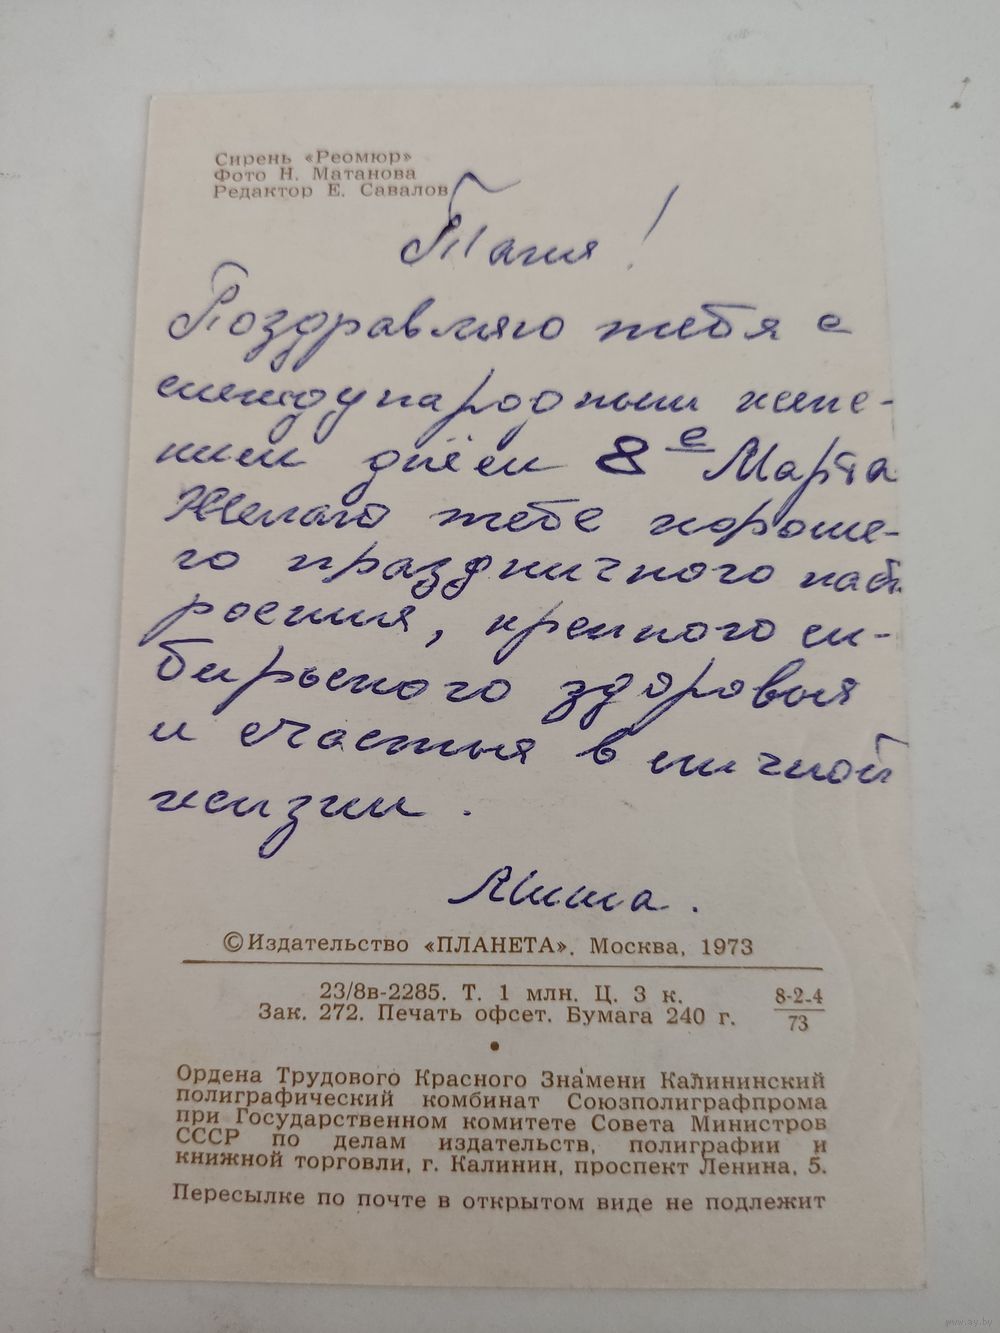 Сирень «Реомюр»
Фото Н. Матанова
Редактор Е. Савалов
Таня!
Поздравляю тебя с
международным женс-
ким днём 8 е Марта
Желаю тебе хороше-
го праздничного наст
роения, крепкого си-
бирьского здоровья
и счастья в личной
жизни.
Миша.
© Издательство «ПЛАНЕТА». Москва, 1973
23/8в-2285. Т. 1 млн. Ц. 3 к.
Зак. 272. Печать офсет. Бумага 240 г.
8-2-4
73
Ордена Трудового Красного Знамени Калининский
полиграфический комбинат Союзполиграфпрома
при Государственном комитете Совета Министров
СССР по делам издательств, полиграфии и
книжной торговли, г. Калинин, проспект Ленина, 5.
Пересылке по почте в открытом виде не подлежит
www.ay.by